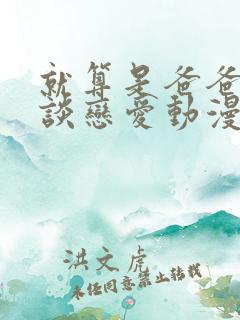 就算是爸爸
談戀愛動漫
洪文虎
未经同意禁止转载